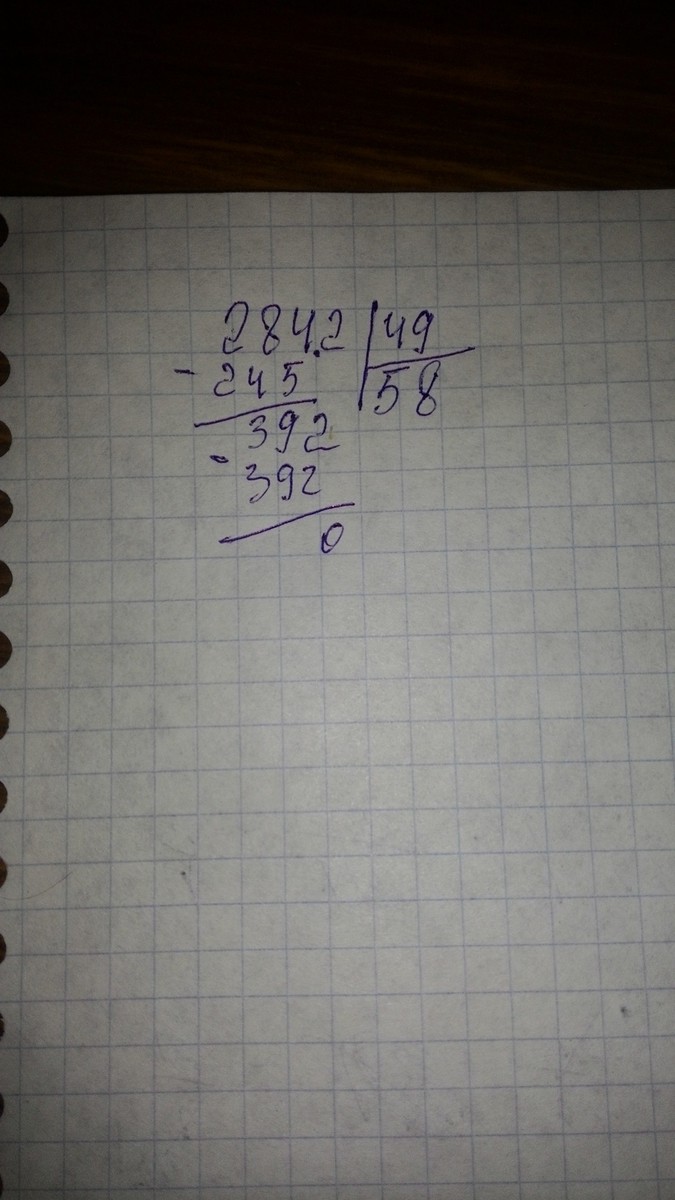 2842 | 49
- 245 | 58
392
- 392
0